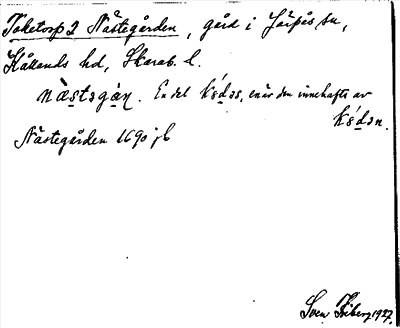 Toketorp 2 Nästegården, gård i Järpås sn,
Kållands hd, Skarab. l.
nàstəgàṇ. En del kŝ́dəs, enär den innehafts av
kŝ́dən.
Nästegården 1690 jb
Sven Ekberg 1927.